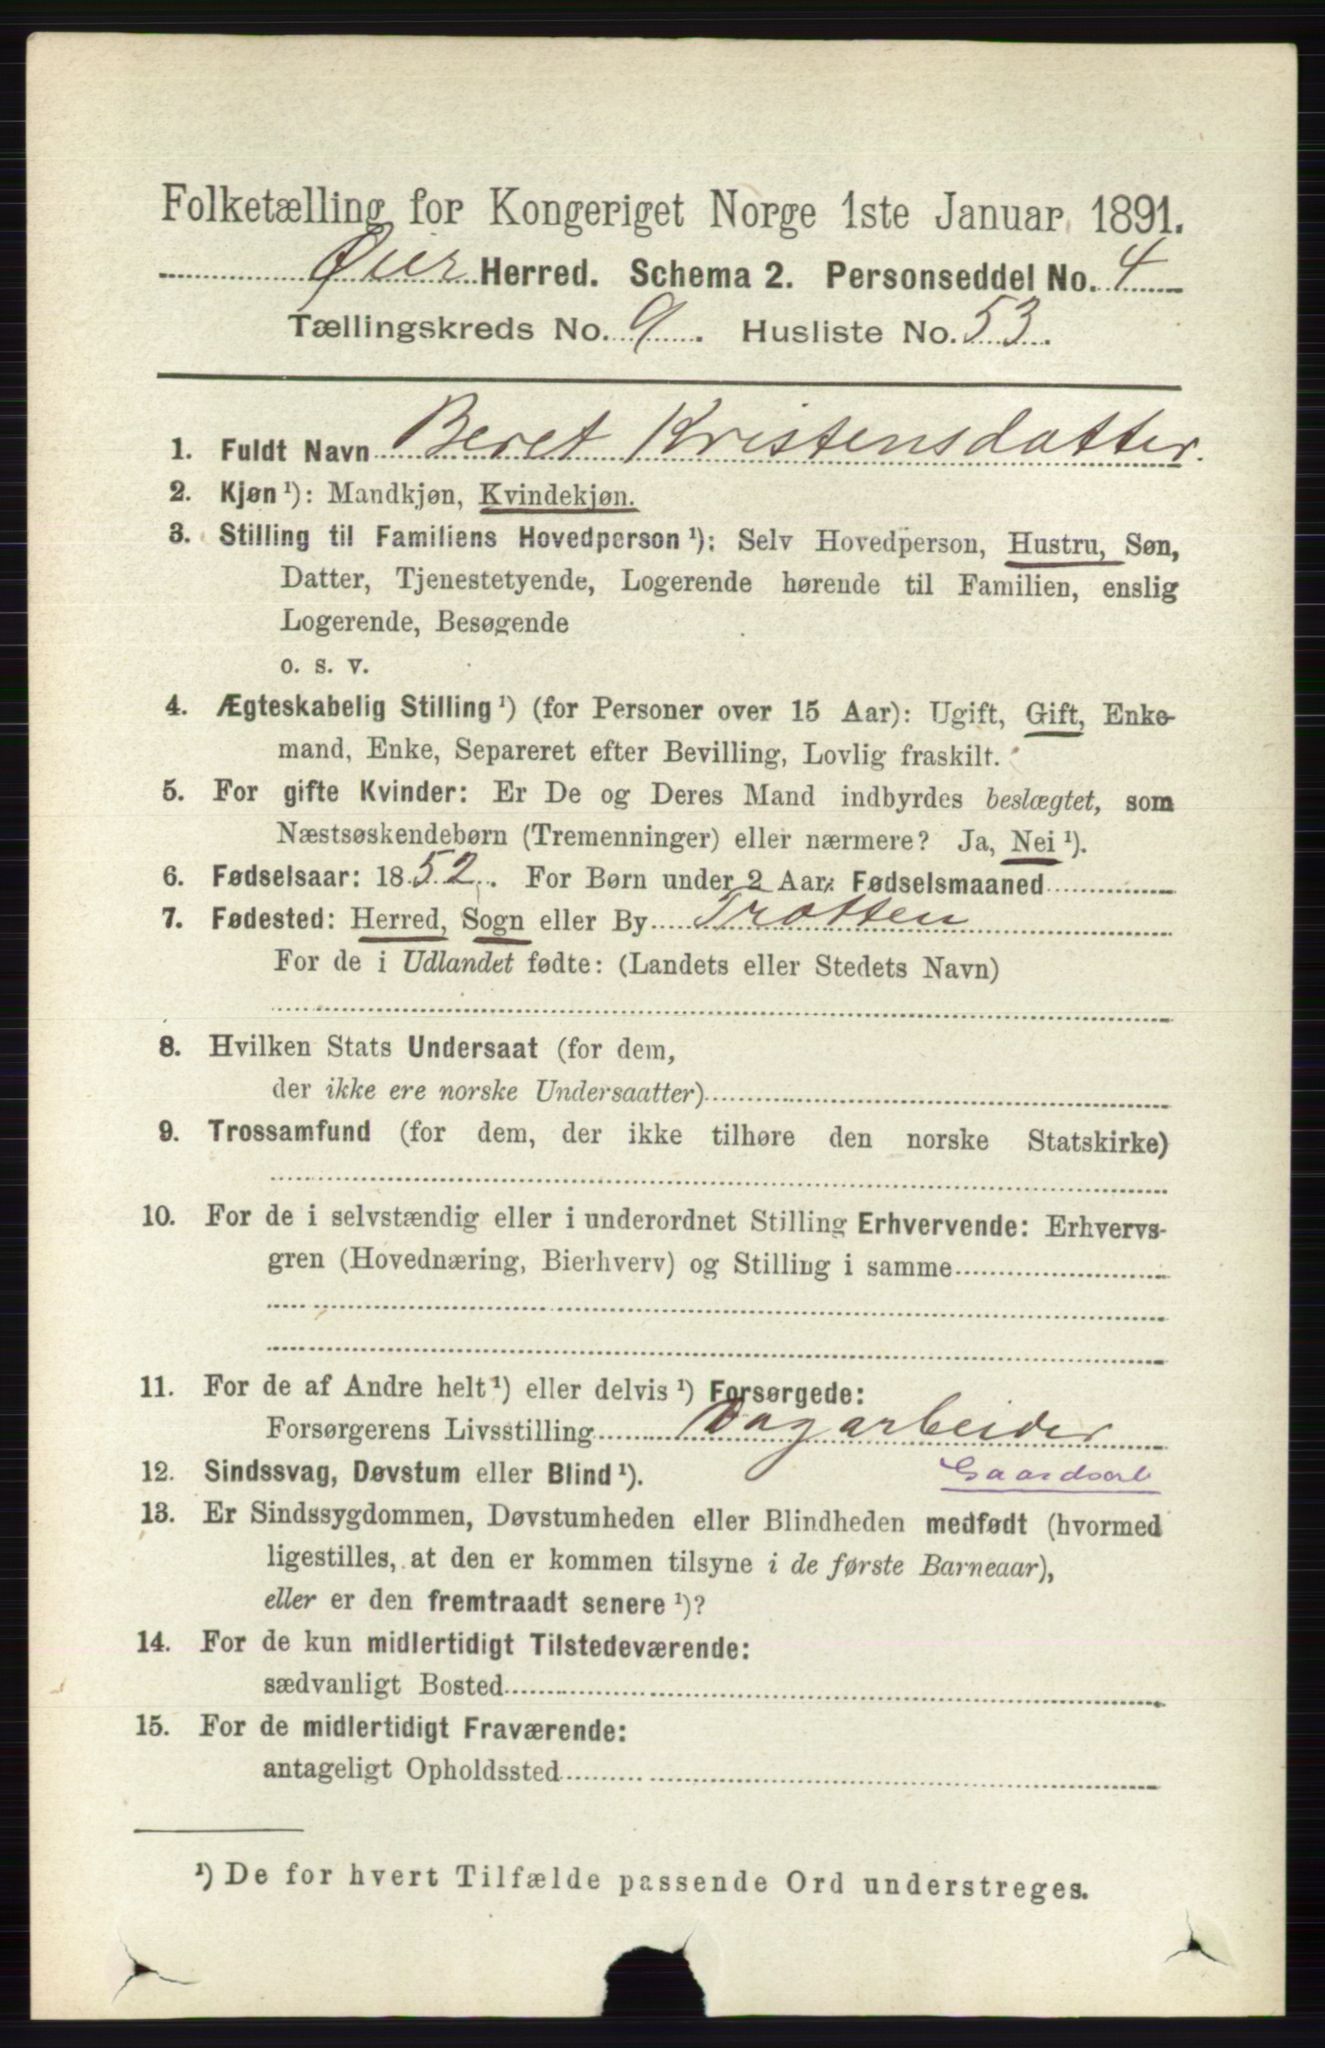 Folketælling for Kongeriget Norge 1ste Januar 1891.
Øier Herred. Schema 2. Personseddel No. 4
Tællingskreds No. 9. Husliste No. 53.
1. Fuldt Navn Beret Kristensdatter.
2. Kjøn¹): Mandkjøn, Kvindekjøn.
3. Stilling til Familiens Hovedperson¹): Selv Hovedperson, Hustru, Søn,
Datter, Tjenestetyende, Logerende hørende til Familien, enslig
Logerende, Besøgende
o. s. v.
4. Ægteskabelig Stilling¹) (for Personer over 15 Aar): Ugift, Gift, Enke-
mand, Enke, Separeret efter Bevilling, Lovlig fraskilt.
5. For gifte Kvinder: Er De og Deres Mand indbyrdes beslægtet, som
Næstsøskendebørn (Tremenninger) eller nærmere? Ja, Nei¹).
6. Fødselsaar: 1852. For Børn under 2 Aar: Fødselsmaaned
7. Fødested: Herred, Sogn eller By Trotten
For de i Udlandet fødte: (Landets eller Stedets Navn)
8. Hvilken Stats Undersaat (for dem,
der ikke ere norske Undersaatter)
9. Trossamfund (for dem, der ikke tilhøre den norske Statskirke)
10. For de i selvstændig eller i underordnet Stilling Erhvervende: Erhvervs-
gren (Hovednæring, Bierhverv) og Stilling i samme
11. For de af Andre helt¹) eller delvis¹) Forsørgede:
Forsørgerens Livsstilling Dagarbeider
12. Sindssvag, Døvstum eller Blind¹). Gaardsarb
13. Er Sindssygdommen, Døvstumheden eller Blindheden medfødt (hvormed
ligestilles, at den er kommen tilsyne i de første Barneaar),
eller er den fremtraadt senere¹)?
14. For de kun midlertidigt Tilstedeværende:
sædvanligt Bosted
15. For de midlertidigt Fraværende:
antageligt Opholdssted
¹) De for hvert Tilfælde passende Ord understreges.